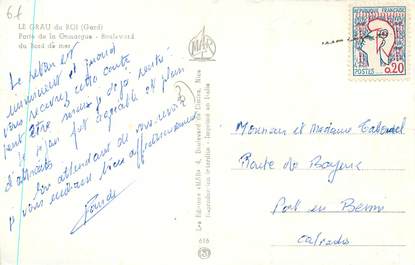 6f
LE GRAU du ROI (Gard)
Porte de la Camargue - Boulevard
du Bord de mer
MAR
REPUBLIQUE FRANÇAISE
0,20
POSTES
Le retour est
imminent et quand
vous recevrez cette carte
peut être serons-je déjà rentré
le séjour fut agréable et plein
d'attraits
En attendant de vous revoir
je vous embrasse bien affectueusement
Les Editions «MAR» 4, Boulevard de Cimiez, Nice
Reproduction interdite - Imprimé en Italie
616
Monsieur et Madame
Route de Bayeux
Port en Bessin
Calvados